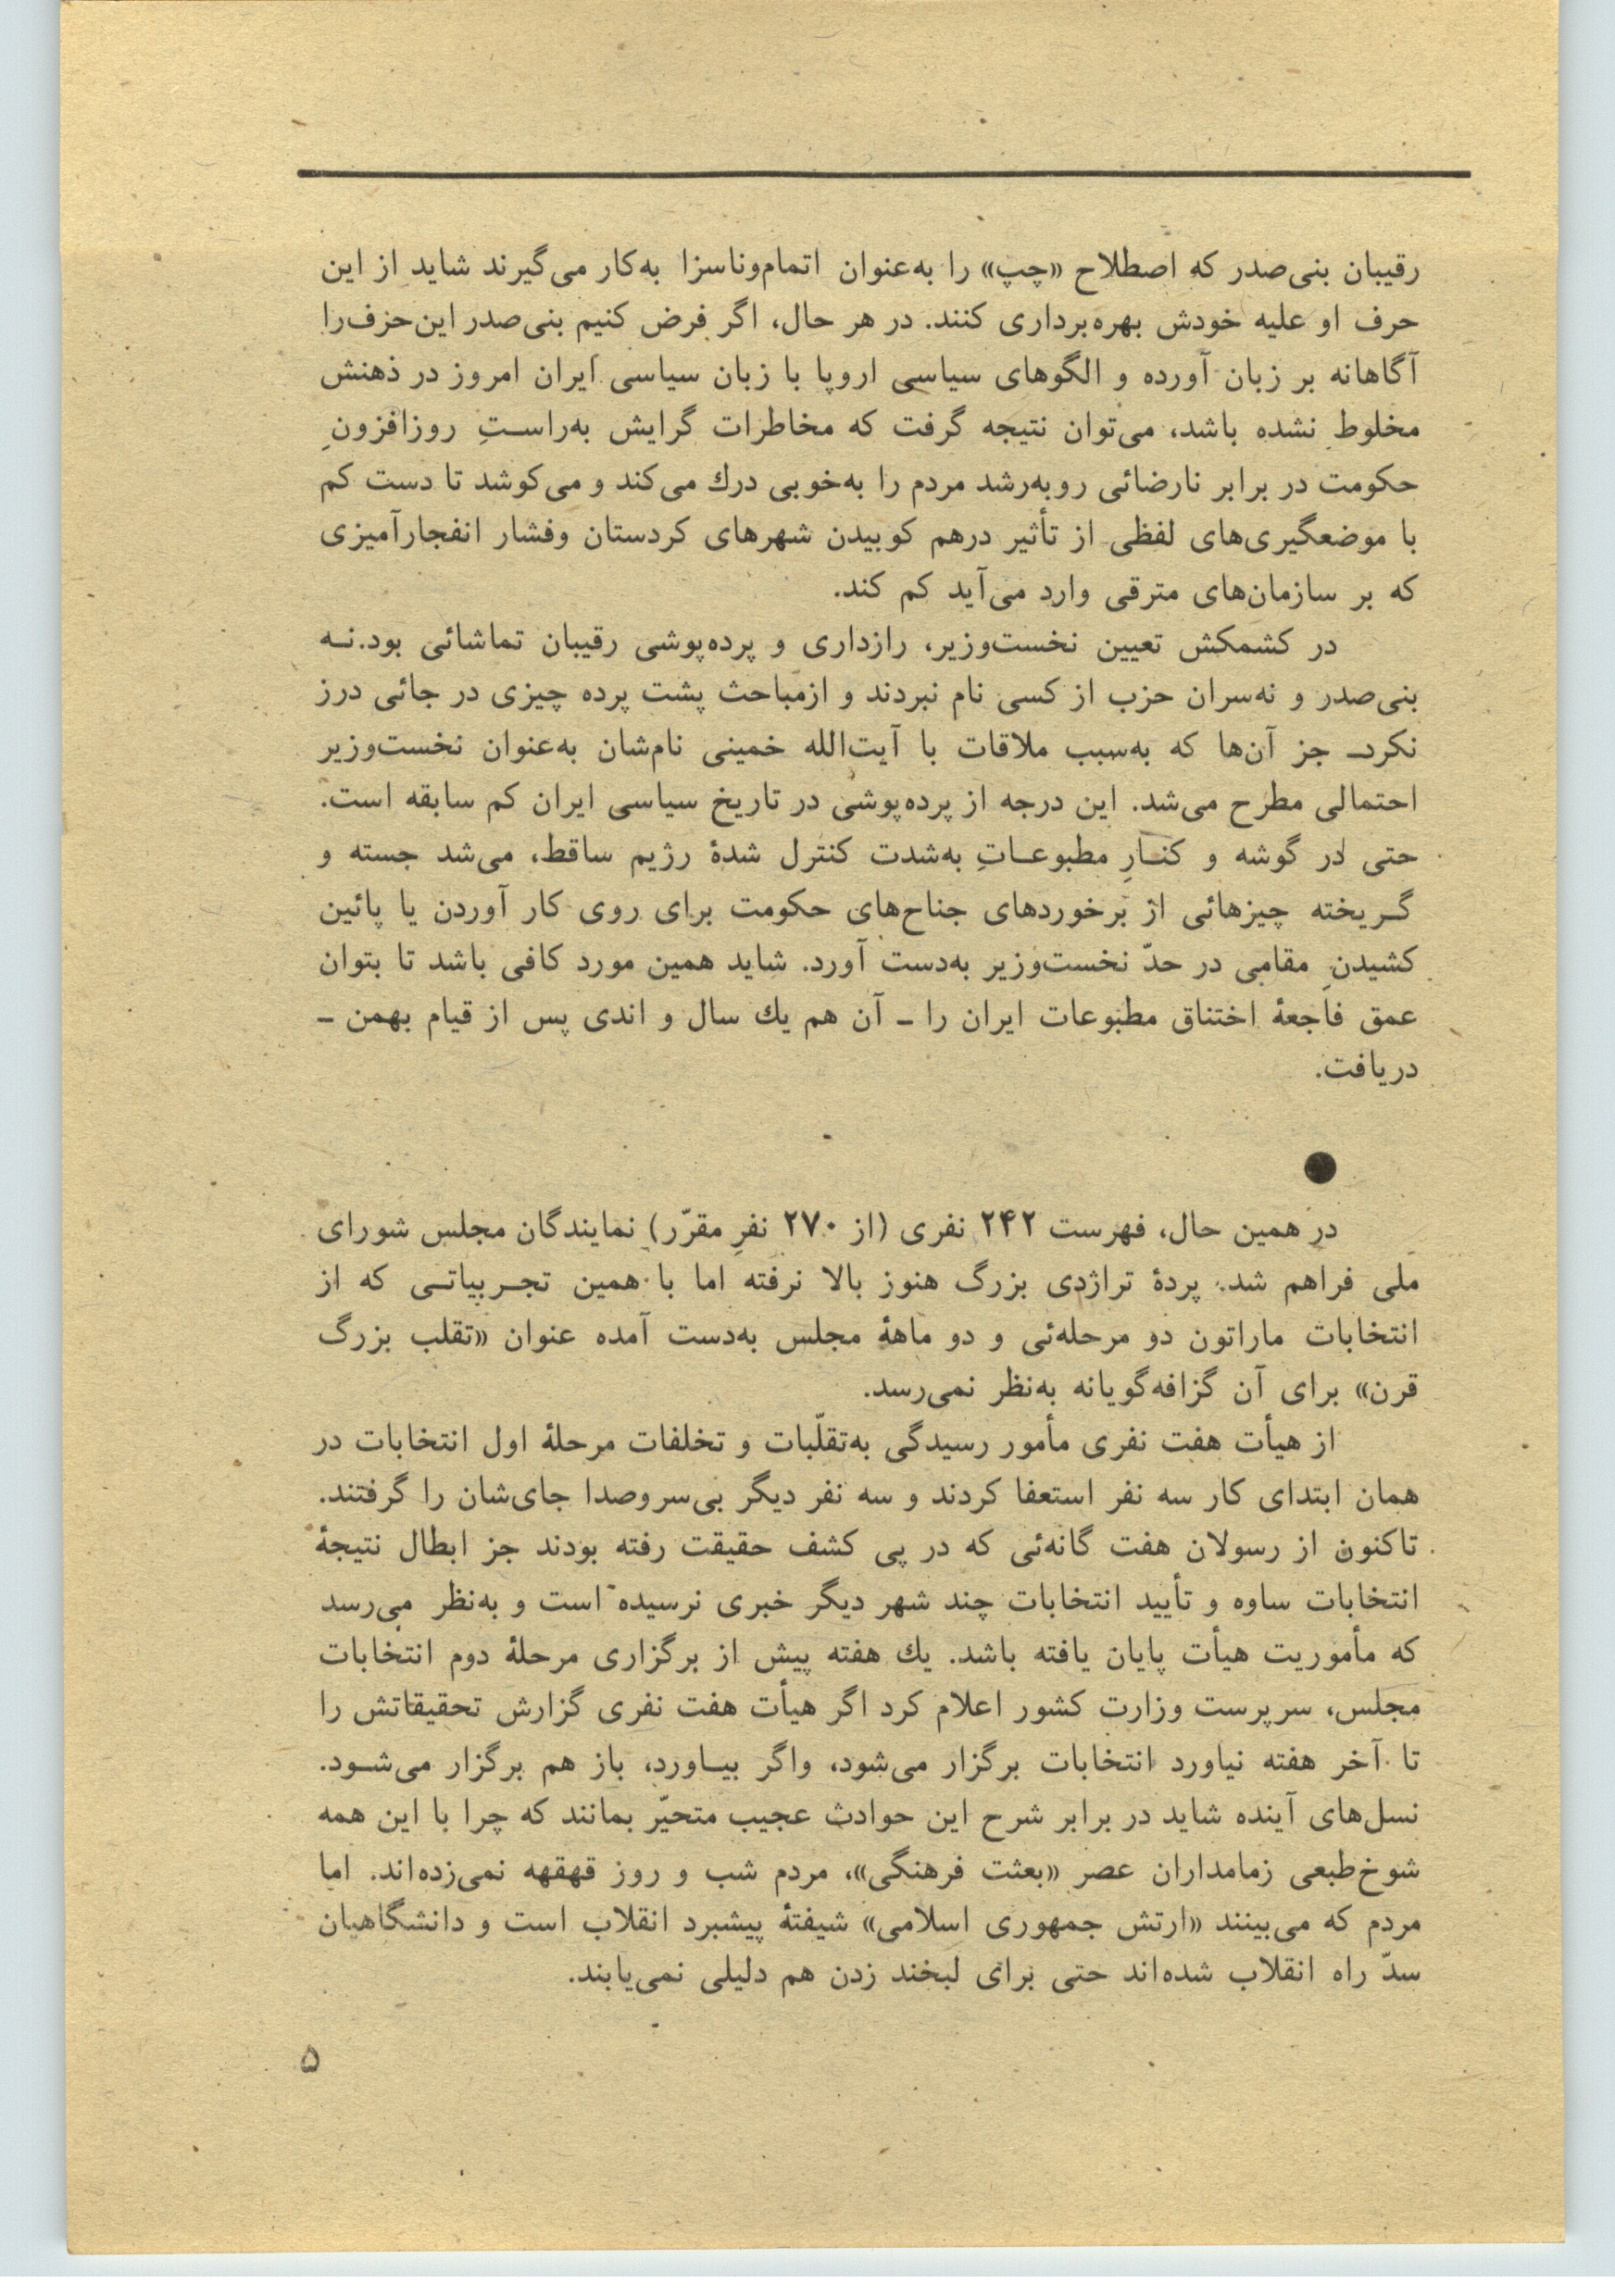 رقیبان بنی‌صدر که اصطلاح «چپ» را به‌عنوان اتمام‌وناسزا به‌کار می‌گیرند شاید از این
حرف او علیه خودش بهره‌برداری کنند. در هر حال، اگر فرض کنیم بنی‌صدر این‌حزف‌را
آگاهانه بر زبان آورده و الگوهای سیاسی اروپا با زبان سیاسی ایران امروز در ذهنش
مخلوط نشده باشد، می‌توان نتیجه گرفت که مخاطرات گرایش به‌راستِ روزافزونِ
حکومت در برابر نارضائی روبه‌رشد مردم را به‌خوبی درك می‌کند و می‌کوشد تا دست کم
با موضعگیری‌های لفظی از تأثیر درهم کوبیدن شهرهای کردستان وفشار انفجارآمیزی
که بر سازمان‌های مترقی وارد می‌آید کم کند.
در کشمکش تعیین نخست‌وزیر، رازداری و پرده‌پوشی رقیبان تماشائی بود.نـه
بنی‌صدر و نه‌سران حزب از کسی نام نبردند و ازمباحث پشت پرده چیزی در جائی درز
نکردـ جز آن‌ها که به‌سبب ملاقات با آیت‌الله خمینی نام‌شان به‌عنوان نخست‌وزیر
احتمالی مطرح می‌شد. این درجه از پرده‌پوشی در تاریخ سیاسی ایران کم سابقه است.
حتی در گوشه و کنـارِ مطبوعـاتِ به‌شدت کنترل شدۀ رژیم ساقط، می‌شد جسته و
گـریخته چیزهائی از برخوردهای جناح‌های حکومت برای روی کار آوردن یا پائین
کشیدنِ مقامی در حدّ نخست‌وزیر به‌دست آورد. شاید همین مورد کافی باشد تا بتوان
عمق فاجعۀ اختناق مطبوعات ایران را ـ آن هم یك سال و اندی پس از قیام بهمن ـ
دریافت.
●
در همین حال، فهرست ۲۴۲ نفری (از ۲۷۰ نفرِ مقرّر) نمایندگان مجلس شورای
ملی فراهم شد. پردۀ تراژدی بزرگ هنوز بالا نرفته اما با همین تجـربیاتـی که از
انتخابات ماراتون دو مرحله‌ئی و دو ماهۀ مجلس به‌دست آمده عنوان «تقلب بزرگ
قرن» برای آن گزافه‌گویانه به‌نظر نمی‌رسد.
از هیأت هفت نفری مأمور رسیدگی به‌تقلّبات و تخلفات مرحلۀ اول انتخابات در
همان ابتدای کار سه نفر استعفا کردند و سه نفر دیگر بی‌سروصدا جای‌شان را گرفتند.
تاکنون از رسولان هفت گانه‌ئی که در پی کشف حقیقت رفته بودند جز ابطال نتیجۀ
انتخابات ساوه و تأیید انتخابات چند شهر دیگر خبری نرسیده است و به‌نظر می‌رسد
که مأموریت هیأت پایان یافته باشد. یك هفته پیش از برگزاری مرحلۀ دوم انتخابات
مجلس، سرپرست وزارت کشور اعلام کرد اگر هیأت هفت نفری گزارش تحقیقاتش را
تا آخر هفته نیاورد انتخابات برگزار می‌شود، واگر بیـاورد، باز هم برگزار می‌شـود.
نسل‌های آینده شاید در برابر شرح این حوادث عجیب متحیّر بمانند که چرا با این همه
شوخ‌طبعی زمامداران عصر «بعثت فرهنگی»، مردم شب و روز قهقهه نمی‌زده‌اند. اما
مردم که می‌بینند «ارتش جمهوری اسلامی» شیفتۀ پیشبرد انقلاب است و دانشگاهیان
سدّ راه انقلاب شده‌اند حتی برای لبخند زدن هم دلیلی نمی‌یابند.
۵